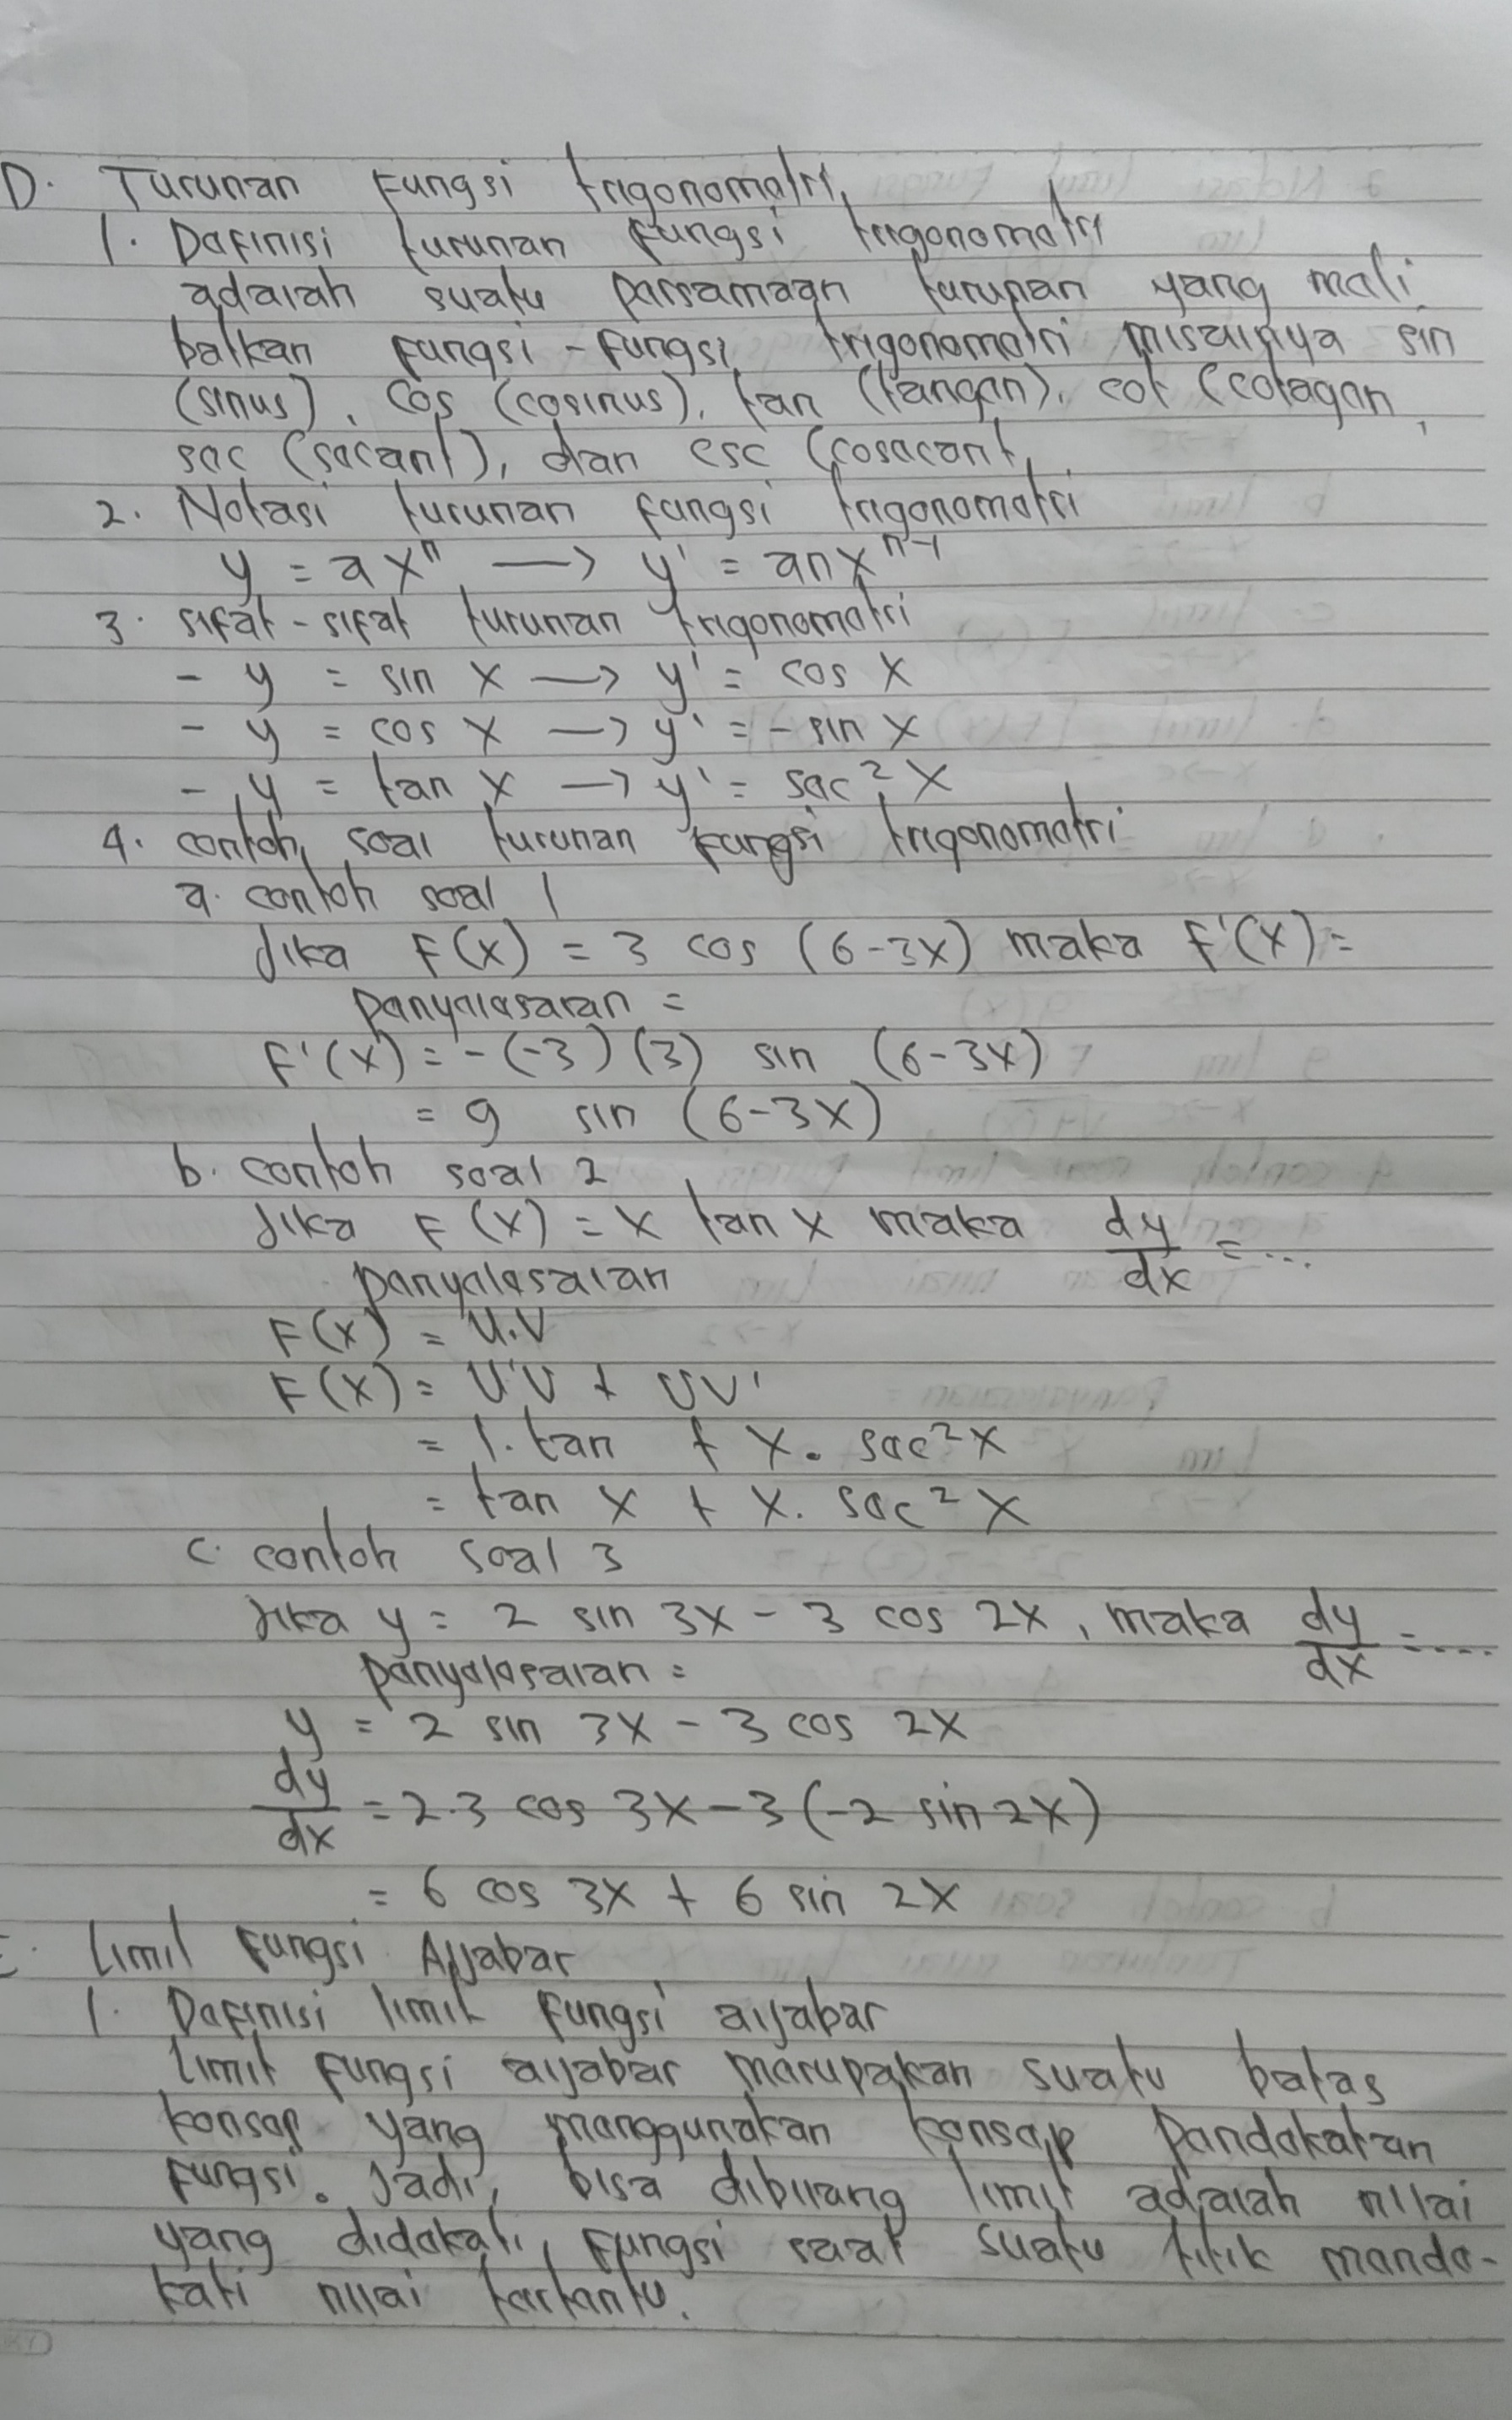 D. Turunan Fungsi trigonometri
1. Definisi turunan fungsi trigonometri
adalah suatu persamaan turunan yang meli
batkan fungsi-fungsi trigonometri misalnya sin
(sinus), cos (cosinus), tan (tangen), cot (cotagen,
sec (secant), dan csc (cosecant,
2. Notasi turunan fungsi trigonometri
y = ax^n → y' = anx^(n-1)
3. sifat-sifat turunan trigonometri
- y = sin x → y' = cos x
- y = cos x → y' = - sin x
- y = tan x → y' = sec² x
4. contoh soal turunan fungsi trigonometri
a. contoh soal 1
Jika F(x) = 3 cos (6-3x) maka F'(x) =
penyelesaian =
F'(x) = -(-3)(3) sin (6-3x)
= 9 sin (6-3x)
b. contoh soal 2
Jika F(x) = x tan x maka dy/dx = ...
penyelesaian
F(x) = U.V
F(x) = U'V + UV'
= 1. tan + x. sec²x
= tan x + x. sec² x
c. contoh soal 3
Jika y = 2 sin 3x - 3 cos 2x, maka dy/dx = ....
penyelesaian =
y = 2 sin 3x - 3 cos 2x
dy/dx = 2.3 cos 3x - 3(-2 sin 2x)
= 6 cos 3x + 6 sin 2x
E. Limit Fungsi Aljabar
1. Definisi limit fungsi aljabar
Limit fungsi aljabar merupakan suatu batas
konsep yang menggunakan konsep pendekatan
fungsi. Jadi, bisa dibilang limit adalah nilai
yang didekati fungsi saat suatu titik mende-
kati nilai tertentu.